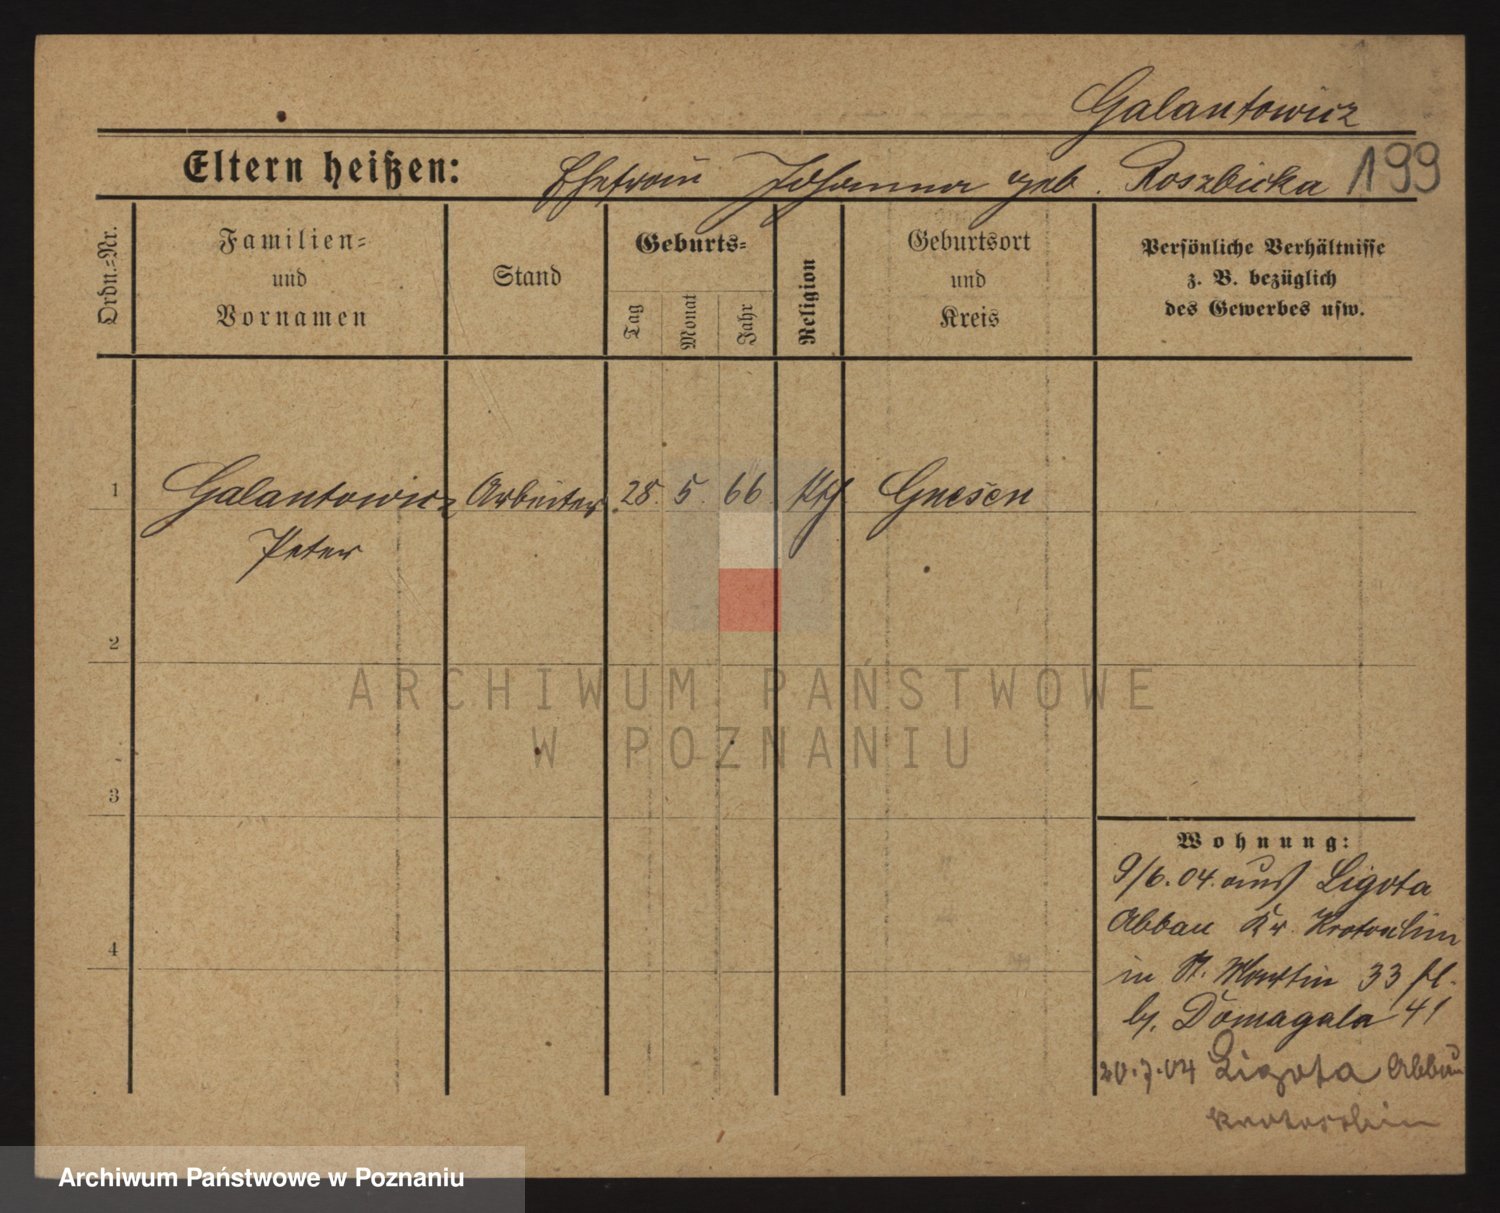 Galantowicz
Eltern heißen: Ehefrau Johanna geb. Roszbicka 199
Ordn.-Nr.
Familien-
und
Vornamen
Stand
Geburts-
Tag
Monat
Jahr
Religion
Geburtsort
und
Kreis
Persönliche Verhältnisse
z. B. bezüglich
des Gewerbes usw.
1 Galantowicz Arbeiter 28. 5. 66 kth Gnesen
Peter
2
ARCHIWUM PAŃSTWOWE
W POZNANIU
3
Wohnung:
9/6.04. aus Ligota
Abbau Kr. Krotoschin
in St. Martin 33
b/. Domagala 41
4
20.7.04 Ligota Abbau
Krotoschin
Archiwum Państwowe w Poznaniu